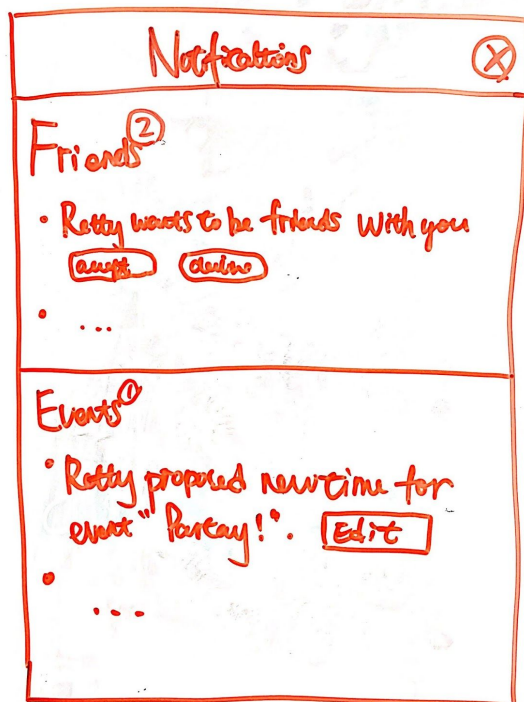 Notifications X
Friends 2
• Ratty wants to be friends with you
accept decline
• ...
Events 1
• Ratty proposed new time for
event "Partay!". Edit
•
...